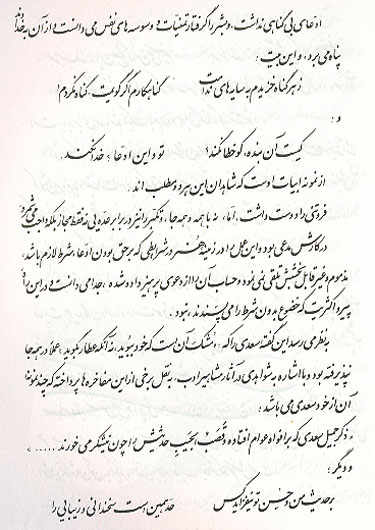 ادعای بی گناهی نداشت، و بشر را گرفتار تمنیات و وسوسه های نفس می دانست و از آن به خدا
پناه می برد، و این بیت:
ز هر گناه خزیدم به سایه های ندامت گناهکارم اگر گویمت، گناه نکردم!
و:
کیست آن بنده، که خطا نکند؟ تو و این ادعا؟ خدا نکند.
از نمونه ابیات اوست که شاهدان این هر دو مطلب اند.
فروتنی را دوست داشت، اما، نه با همه و همه جا، و تکبر را نیز در برابر عده یی نه فقط مجاز بلکه واجب می شمرد
در کارش مدعی بود و این عمل را در زمینه هنر و در شرایطی که بر حق بودن ادعا، شرط لازم باشد،
مذموم و غیر قابل بخشش تلقی نمی نمود و حساب آن را از دعوی پر هیز داده شده، جدا می دانست و در این راه
پیرو اکثریت که خضوع بدون شرط را می پسندند، نبود.
به نظر می رسد این گفته سعدی را که: «مشک آن است که خود ببوید، نه آنکه عطار بگوید» عملاً در همه جا
نپذیرفته بود و با اشاره به شواهدی در آثار مشاهیر ادب، به نقل برخی از این مفاخره ها پرداخته که چند نمونه
آن از خود سعدی می باشد:
«ذکر جمیل سعدی که بر افواه عوام افتاده و قصب الجیب حدیثش را چون نیشکر می خورند......»
و دیگر:
بر حدیث من و حسن تو نیفزاید کس حد همین است سخندانی و زیبایی را